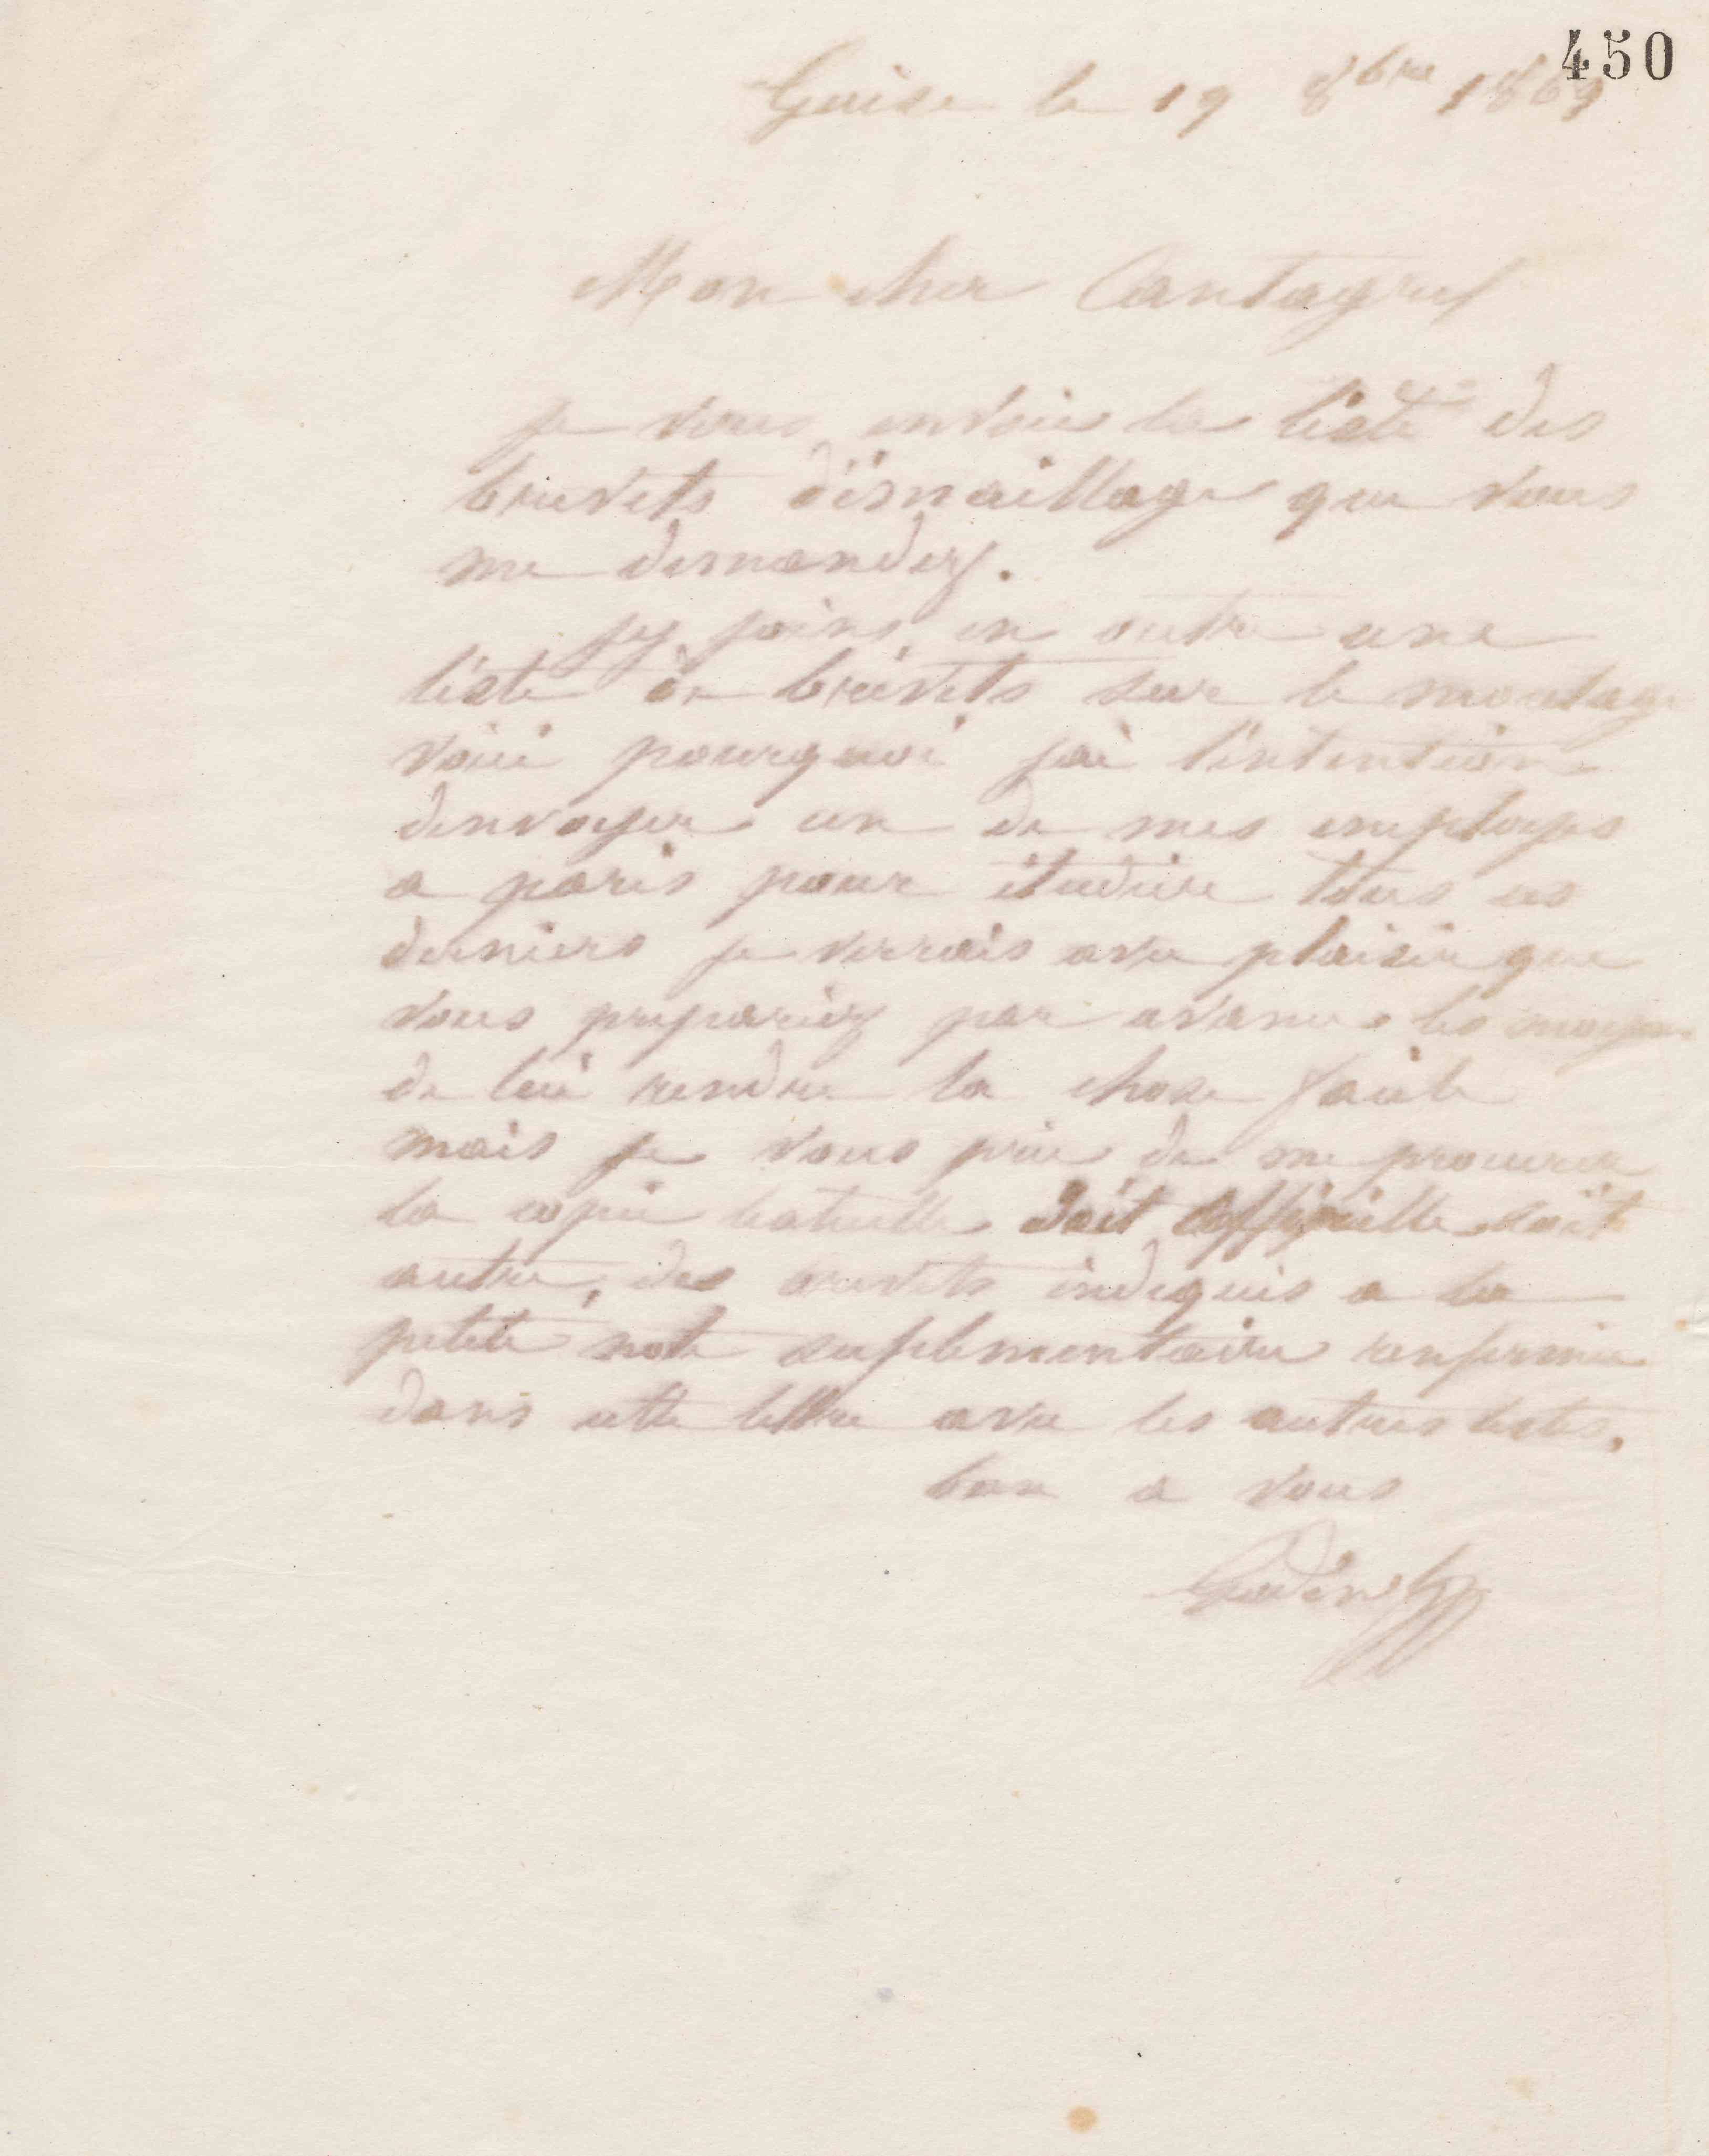 450
Guise le 19 8bre 1869
Mon cher Cantagrel
je vous envoie la liste des
brevets d'émaillage que vous
me demandez.
j'y joins en outre une
liste de brevets sur le moulage
voici pourquoi j'ai l'intention
denvoyer un de mes employés
a paris pour étudier tous ces
derniers je verrais avec plaisir que
vous prepariez par avance les moyens
de lui rendre la chose facile
mais je vous prie de me procurer
la copie textuelle soit officielle soit
autre, des brevets indiqués a la
petite note suplementaire renfermée
dans cette lettre avec les autres listes.
bon a vous
Godin